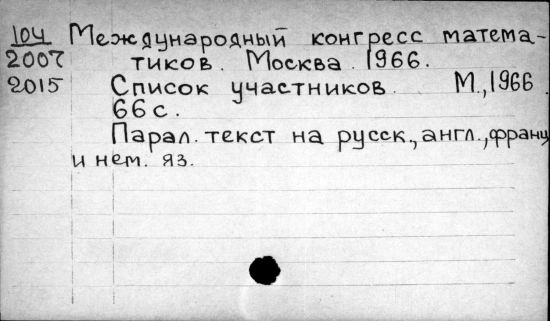 104 Международный конгресс матема-
2007 тиков. Москва. 1966.
2015 Список участников. М., 1966.
66 с.
Парал. текст на русск., англ., франц.
и нем. яз.